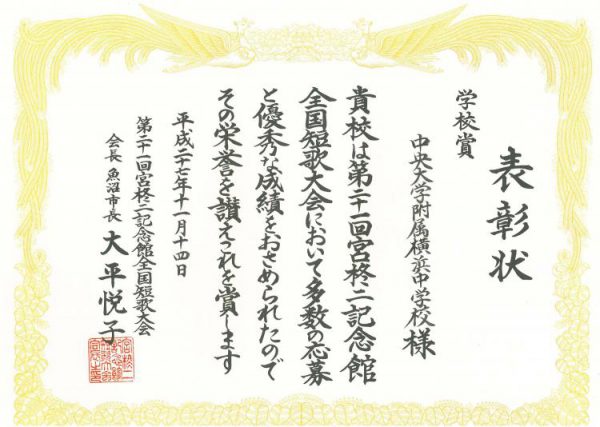 表彰状
学校賞
中央大学附属横浜中学校様
貴校は第二十一回宮柊二記念館
全国短歌大会において多数の応募
と優秀な成績をおさめられたので
その栄誉を讃えこれを賞します
平成二十七年十一月十四日
第二十一回宮柊二記念館全国短歌大会
会長 魚沼市長 大平悦子